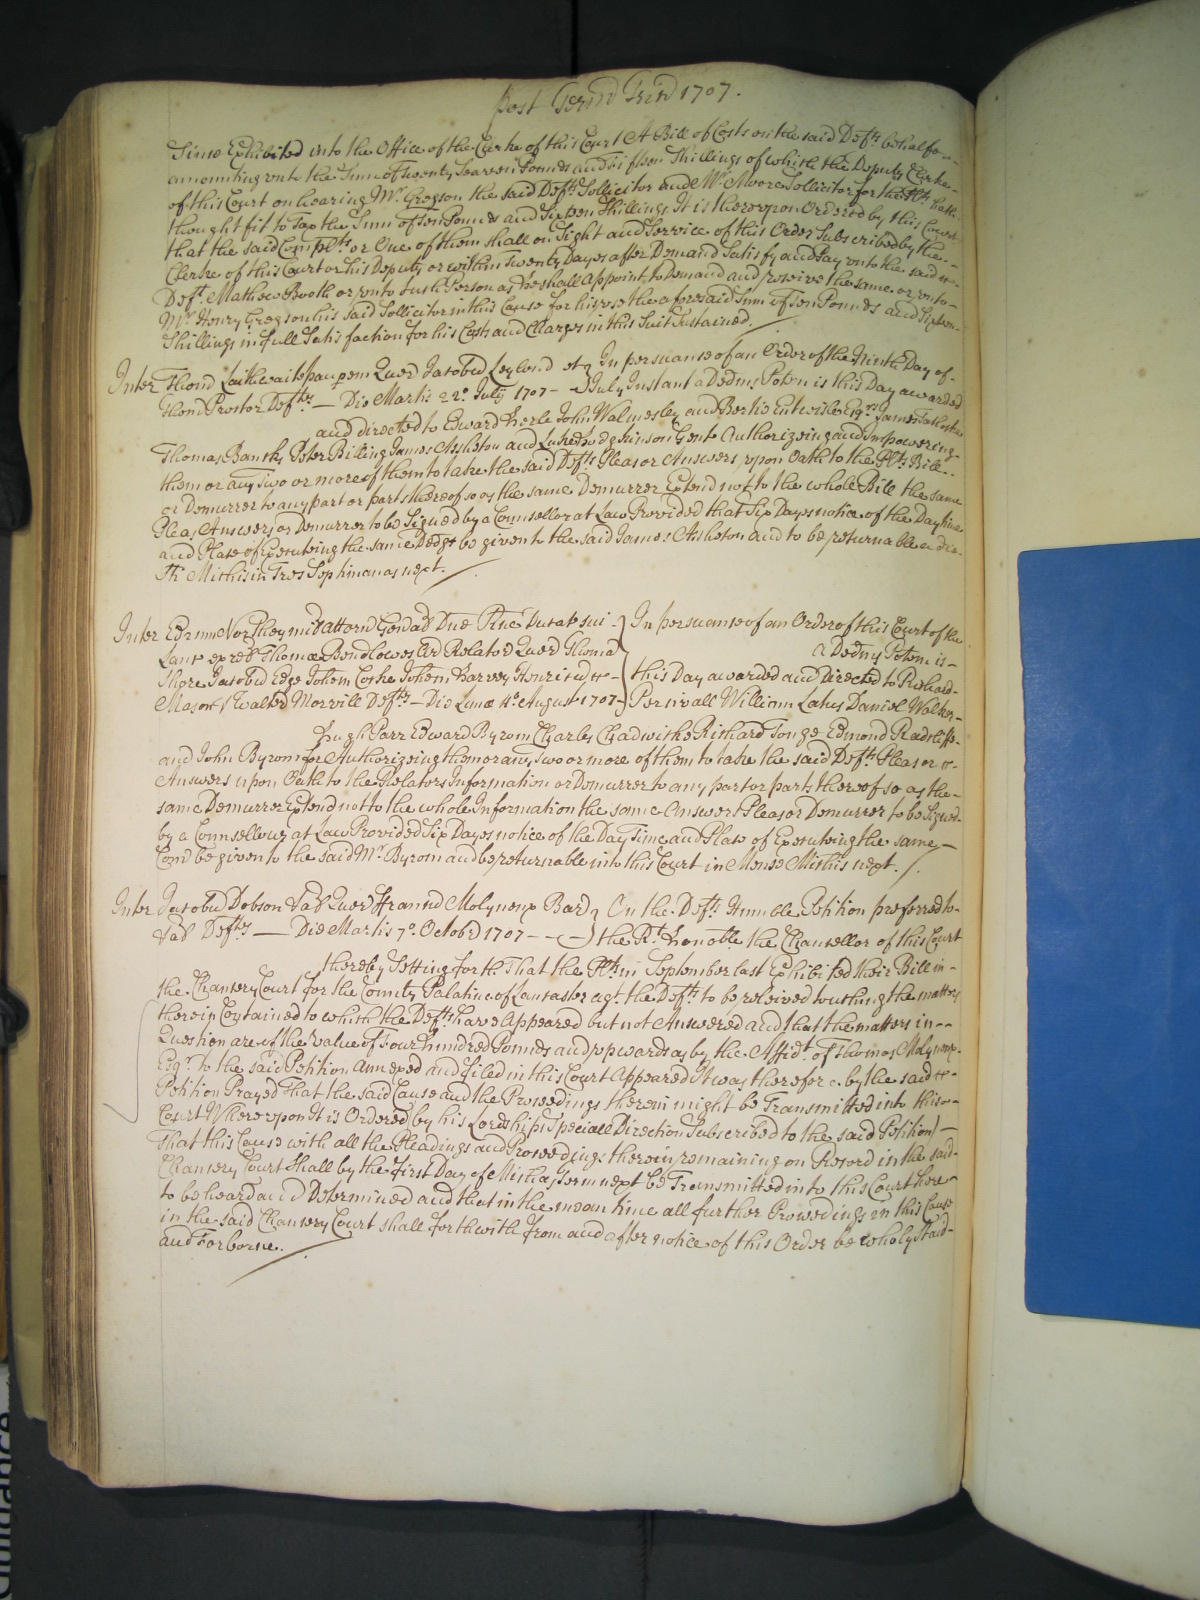 Post Term Trin 1707.
Since Exhibited into the Office of the Clerke of this Court A Bill of Costs on the said Defts. behalfe
amounting unto the Summ of Twenty Seaven Pounds and Fifteen Shillings of which the Deputy Clerke
of this Court on hearing Mr. Gregson the said Defts. Sollicitor and Mr. Moore Sollicitor for the Plts. hath
thought fit to Tax the Summ of Ten Pounds and Sixteen Shillings It is thereupon Ordered by this Court
that the said Complts. or One of them shall on Sight and Service of this Order Subscribed by the
Clerke of this Court or his Deputy or within Twenty Dayes after Demand Satisfy and Pay unto the said
Deft. Mathew Booth or unto such Person as he shall Appoint to Demand and receive the same or unto
Mr. Henry Gregson his said Sollicitor in this Cause for his use the aforesaid Summ of Ten Pounds and Sixteen
Shillings in full Satisfaction for his Costs and Charges in this Suit Sustained.
Inter Thomā Laithwaite paupem Quer Jacobū Leylond et In persuance of an Order of the Ninth Day of
Thom Proctor Defts. Die Martis 22o. July 1707 July Instant a Dedms. Potem is this Day awarded
and directed to Edward Herle John Walmesley and Bertie Entwisle Esqrs. James
Thomas Bancks Peter Billing James Assheton and Luke Hodgkinson Gen to Authorizeing and Impowering
them or any Two or more of them to take the said Defts. Pleas or Answers upon Oath to the Plts. Bill
or Demurrer to any part or parts thereof so as the same Demurrer Extend not to the whole Bill the same
Pleas Answers or Demurrer to be Signed by a Counsellor at Law Provided that Six Days notice of the Day time
and Place of Executeing the same be given to the said James Assheton and to be returnable
Sti Michis in Tres Septimanas next.
Inter Edrum Northey mil attorn Genāl Dnē Rne Ducat sui In persuance of an Order of this Court of the
Lanc ex rel Thomæ Bendlowes Ard Relator Quer Thomā a Dedms Potem is
Shore Jacobū Edge Johem Cocke Johem Harvey Henricū this Day awarded and Directed to Richard
Mason Walter Morvill Defts. Die Lunæ 4o. August 1707 Percivall William Latus Daniel Walker
Hugh Parr Edward Byrom Charles Chadwicke Richard Tonge Edmond Radcliffe
and John Byrom for Authorizeing them or any Two or more of them to take the said Defts. Pleas or
Answers upon Oath to the Relators Information or Demurrer to any part or parts thereof so as the
same Demurrer Extend not to the whole Information the same Answers Pleas or Demurrer to be Signed
by a Counsellour at Law Provided Six Dayes notice of the Day Time and Place of Executeing the same
Com be given to the said Mr. Byrom and be returnable into this Court in Mense Michis next.
Inter Jacobū Dobson Quer Franciū Molyneux Bar On the Defts. Humble Petition preferred to
Defts. Die Martis 7o. Octobr 1707 the Rt. Honoble. the Chancellor of this Court
thereby Setting forth That the Plts. in September last Exhibited their Bill in
the Chancery Court for the County Palatine of Lancaster agt. the Defts. to be releived touching the matters
therein Contained to which the Defts. have Appeared but not Answered and that the matters in
Question are of the value of Four hundred Pounds and upwards as by the Affidt. of Thomas Molyneux
Esqr. to the said Petition annexed and filed in this Court Appeared It was therefore by the said
Petition Prayed That the said Cause and the Proceedings therein might be Transmitted into this
Court Whereupon It is Ordered by his Lordships Speciall Direction Subscribed to the said Petition
That this Cause with all the Pleadings and Proceedings therein remaining on Record in the said
Chancery Court Shall by the first Day of Michas Term next be Transmitted into this Court here
to be heard and Determined and that in the mean time all further Proceedings in this Cause
in the said Chancery Court shall forthwith from and after notice of this Order be wholy Staid
and Forborne.